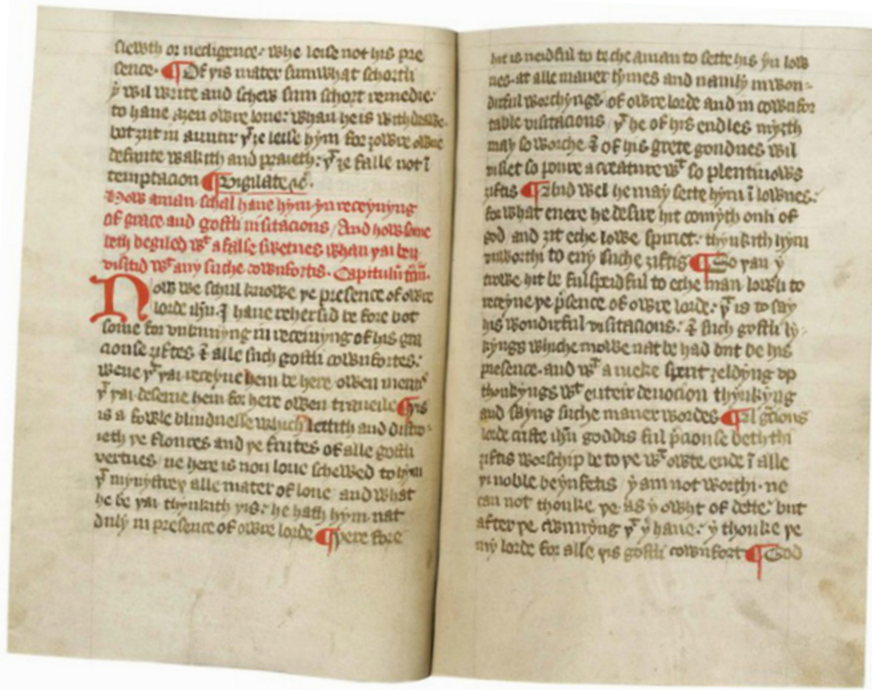 slewth or necligence. whe leise not his pre
sence. ¶ Of yis mater sumwhat schortli
y wil write and schew sum schort remedie.
to have aȝen owre love. whan he is withdrawe.
bot ȝut in auntir yͭ ȝe leise hym for ȝowre owne
defaute wakith and praieth. yͭ ȝe falle not ī
temptacion ¶ Vigilate ⁊c.
How a man schal have hym yn receyvyng
of grace and gostli visitacions / And how some
beth begiled wͭ a false swetnes whan yai ben
visitid wͭ any suche cownfortis. Capitulū
Now we schul knowe ye presence of owre
lorde ihū. I have rehersid be fore bot
some for unkunnyng in receivyng of his gra
ciouse ȝiftes & alle such gostli cownfortes.
wene yͭ yai receyve hem be here owen
y yai deserve hem for here owen traveile ¶ yis
is a fowle blindnesse which lettith and distro-
ieth ye flowres and ye frutes of alle gostli
vertues / ne here is non love schewed to hym
yͭ mynystrey alle mater of love / and what
he be yat thynkith yis. he hath hym nat
duly in presence of owre lorde ¶ yere fore
hit is neidful to teche a man to sette his yn low
nes. at alle maner tymes and namly in won-
dirful worchyngs of owre lorde and in cownfor
table visitacions / yͭ he of his endles myth
may so worche & of his grete goodnes wil
visiet so povre a creature wͭ so plentivows
ȝiftis ¶ And wel he may sette hym ī lownes.
for what evere he desire hit comyth only of
god / and ȝit eche lowe spiriet. thynkith hym
unworthi to eny suche ȝiftis ¶ So yan y
trowe hit be ful spedful to eche man lowli to
receyve ye psence of owre lorde. yͭ is to say
his wondirful visitacions. & such gostli ly-
kyngs whiche mowe nat be had bot be his
presence. and wͭ a meke spirit ȝeldyng up
thonkyngs wͭ enteir devocion thynkyng
and sayng suche maner wordes ¶ A gcious
lorde criste ihū goddis ful pciouse beth thi
ȝiftis worschip be to ye wͭ owte ende ī alle
yi noble beynfetis / y am not worthi. ne
can not thonke ye as y owht of dette. but
after ye cunnyng yͭ y have. y thonke ye
my lorde for alle yis gostli cownfort ¶ God